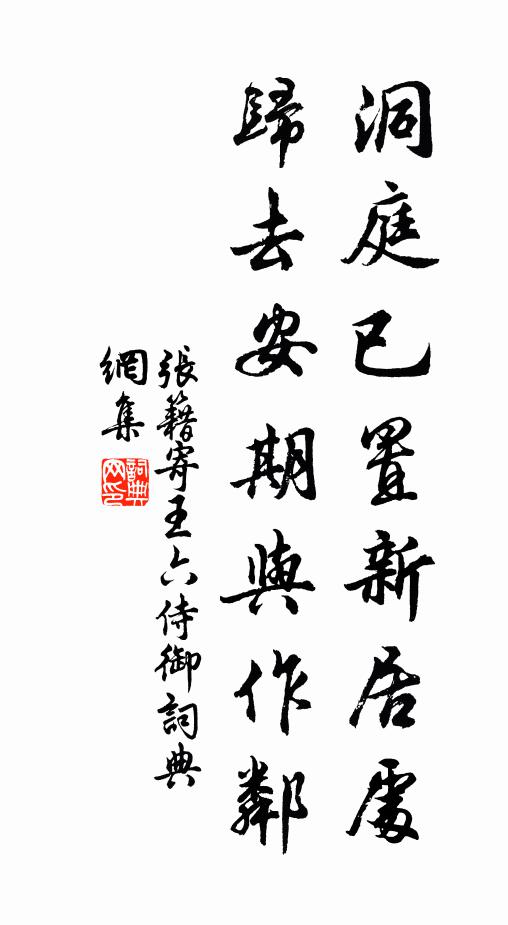 洞庭已置新居處
歸去安期與作鄰
張籍寄王六侍御詞典
網集
詞典
网印